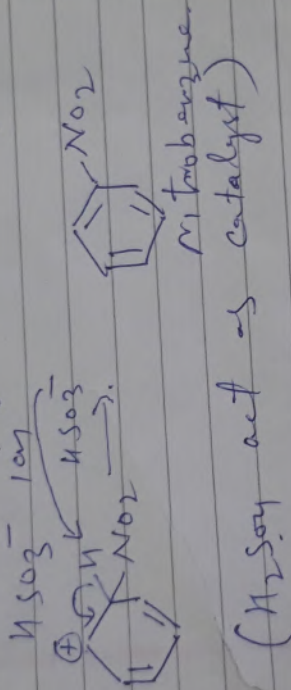 HSO3⁻ ion
⊕ H NO2 HSO3⁻ → NO2
Nitrobenzene
(H2SO4 act as catalyst)